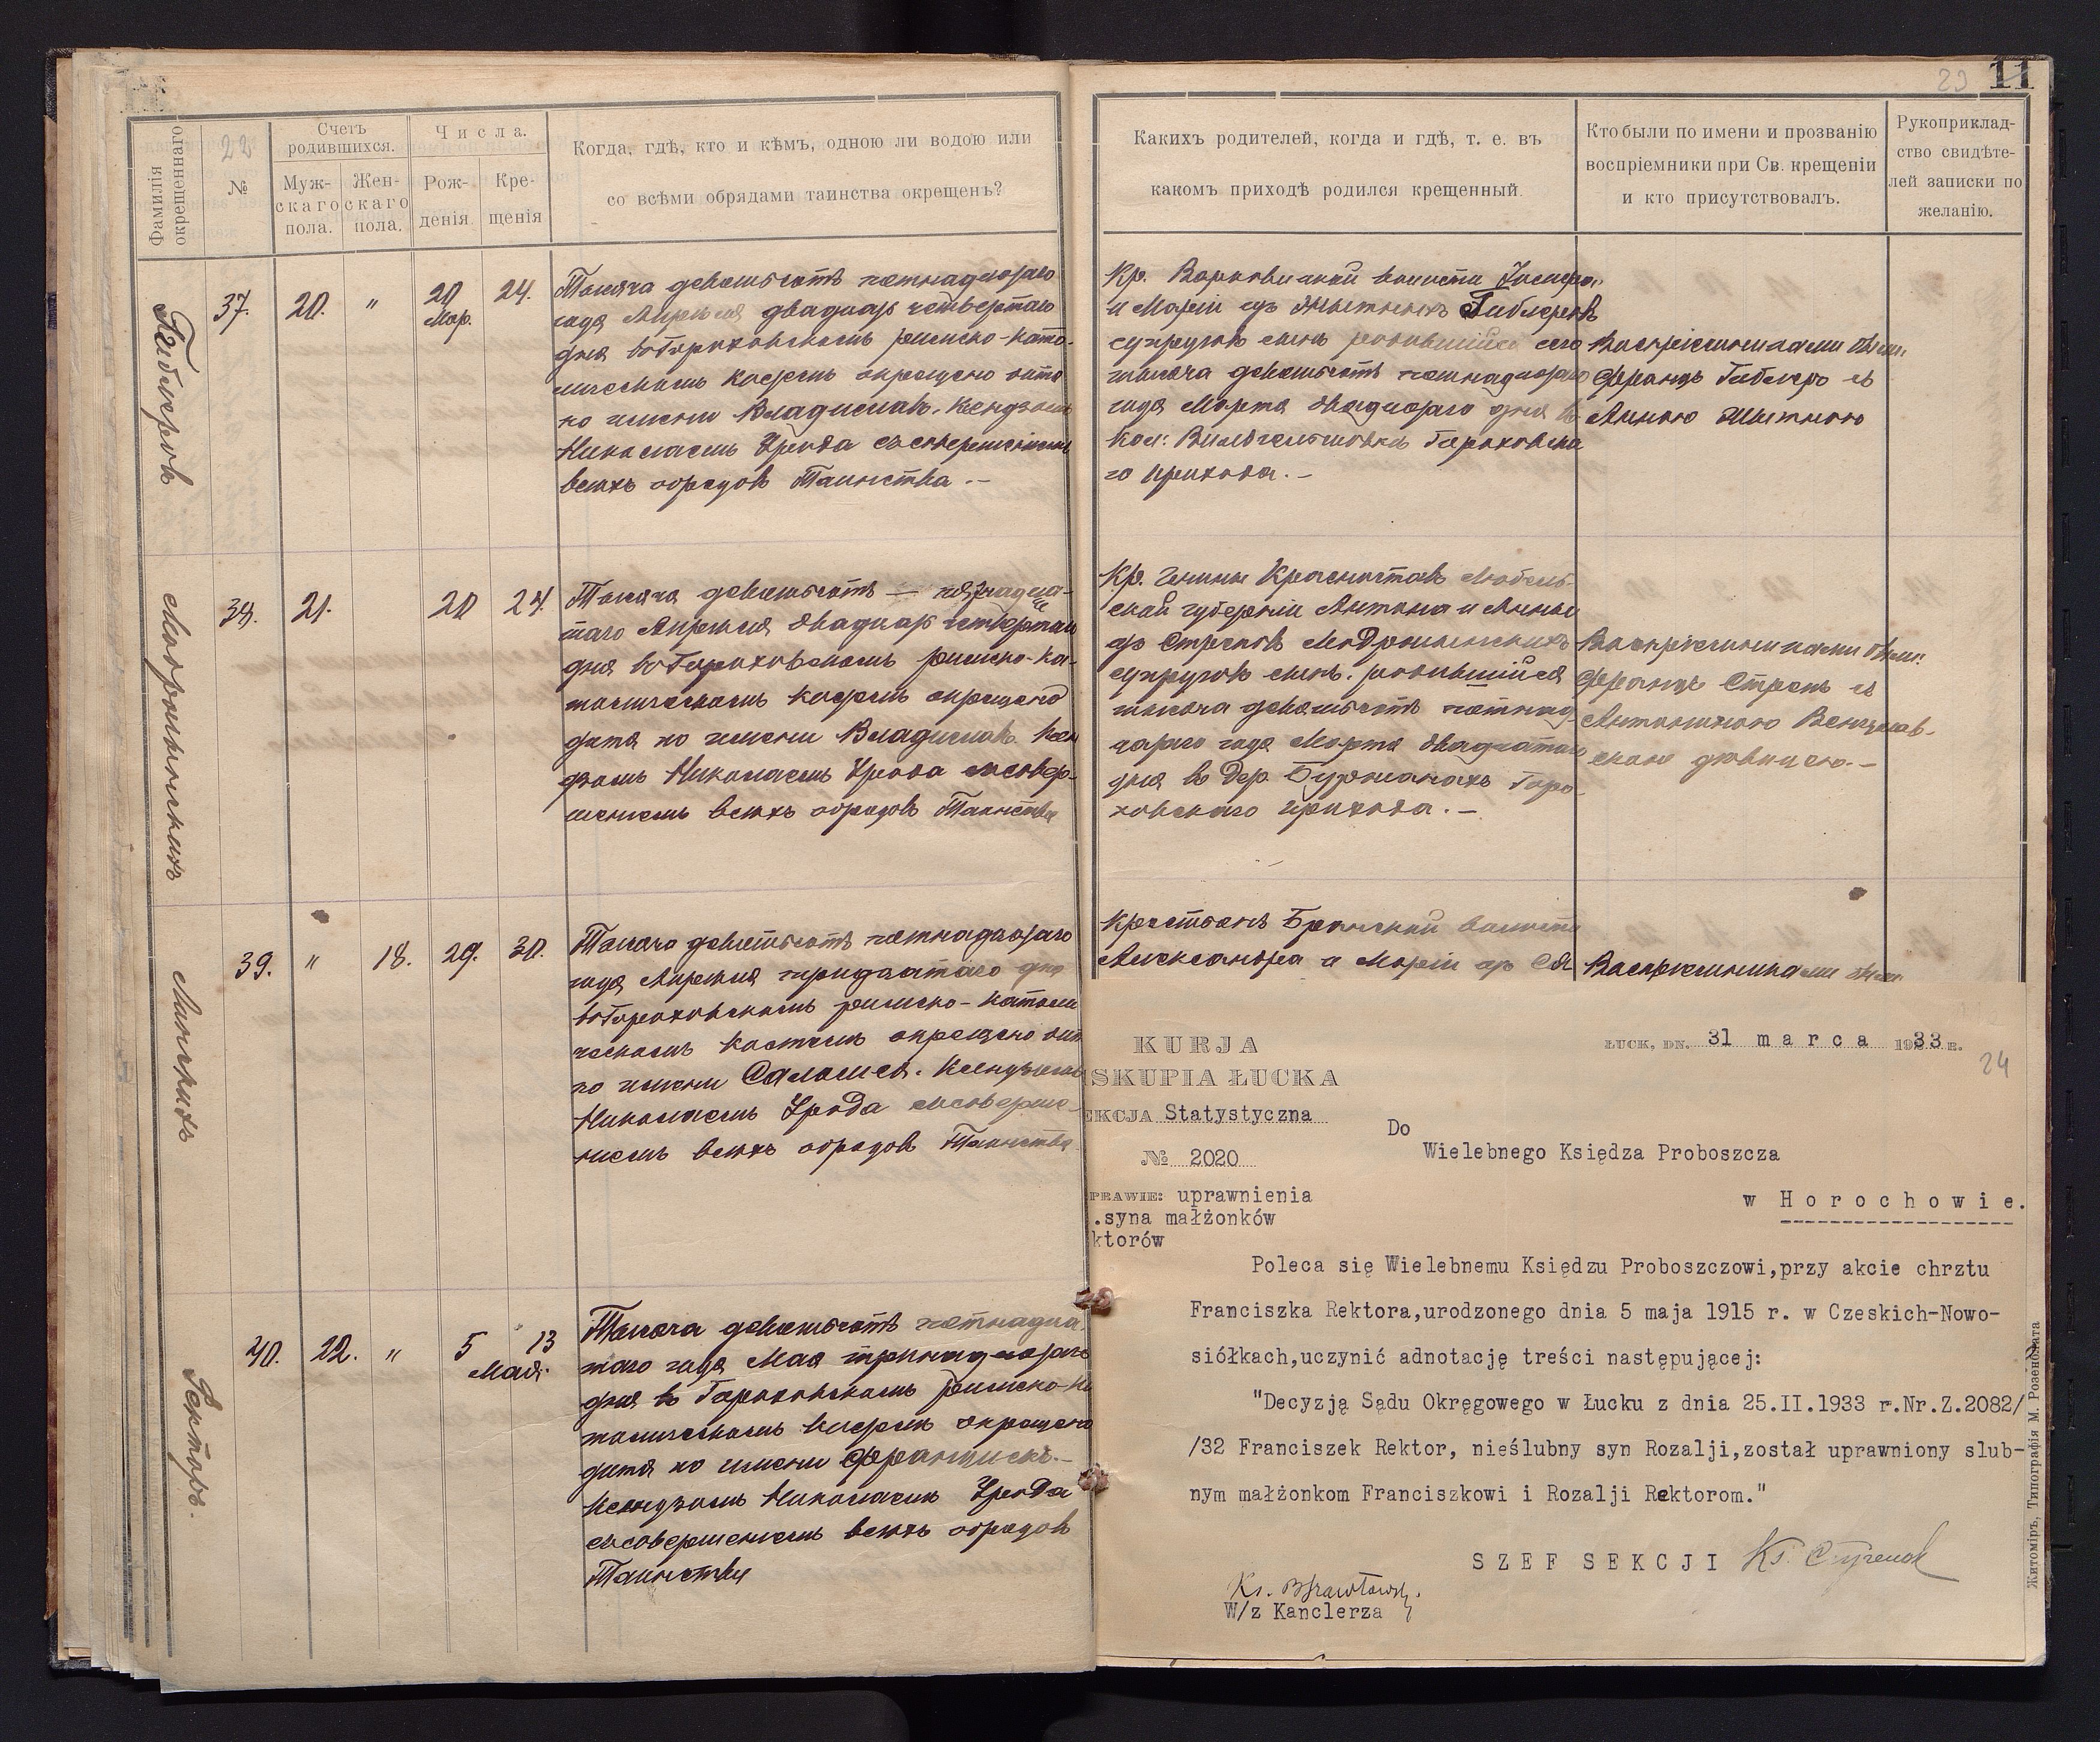 23 11
Фамилія окрещеннаго
22
№
Счетъ родившихся.
Муж-
скаго
пола.
Жен-
скаго
пола.
Числа.
Рож-
денія
Кре-
щенія
Когда, гдѣ, кто и кѣмъ, одною ли водою или
со всѣми обрядами таинства окрещенъ?
Какихъ родителей, когда и гдѣ, т. е. въ
какомъ приходѣ родился крещенный.
Кто были по имени и прозванію
воспріемники при Св. крещеніи
и кто присутствовалъ.
Рукоприклад-
ство свидѣте-
лей записки по
желанію.
37. 20. " 20 Мар. 24.
Тысяча девятьсотъ пятнадцатаго
года Апрѣля двадцать четвертаго
дня въ Гороховскомъ римско-като-
лическомъ костелѣ окрещено дитя
по имени Владиславъ. Ксендзомъ
Николаемъ съ совершеніемъ
всѣхъ обрядовъ Таинства.-
Кр. волости
и Маріи
супруговъ сынъ родившійся сего
тысяча девятьсотъ пятнадцатаго
года Марта двадцатаго дня въ
кол: Гороховска
го прихода.-
Воспріемниками были:
Францъ съ
Анною
38. 21. 20 24.
Тысяча девятьсотъ — пятнадца-
таго Апрѣля двадцать четвертаго
дня въ Гороховскомъ римско-ка-
толическомъ костелѣ окрещено
дитя по имени Владиславъ. Ксен
дзомъ Николаемъ съ совер-
шеніемъ всѣхъ обрядовъ Таинства
Кр. гмины Красноставъ Люблин-
ской губерніи Антона и Анны
супруговъ сынъ. родившійся
тысяча девятьсотъ пятнад-
цатаго года Марта двадцатаго
дня въ дер. Горо-
ховскаго прихода.-
Воспріемниками были:
Францъ съ
Антониною
дѣвицею.-
39. " 18. 29. 30.
Тысяча девятьсотъ пятнадцатаго
года Апрѣля тридцатаго дня
въ Гороховскомъ римско-католи
ческомъ костелѣ окрещено дитя
по имени Саломея. Ксендзомъ
Николаемъ съ соверше-
ніемъ всѣхъ обрядовъ Таинства
Крестьянъ волости
Александра и Маріи
Воспріемниками были
Ректоръ.
40. 22. " 5 Мая. 13
Тысяча девятьсотъ пятнадца-
таго года Мая тринадцатаго
дня въ Гороховскомъ римско-ка
толическомъ костелѣ окрещено
дитя по имени Францискъ.-
Ксендзомъ Николаемъ
съ совершеніемъ всѣхъ обрядовъ
Таинства
KURJA
SKUPIA ŁUCKA
EKCJA Statystyczna
№ 2020
PRAWIE: uprawnienia
.syna małżonków
ktorów
ŁUCK, DN. 31 marca 1933 R.
24
Do
Wielebnego Księdza Proboszcza
w Horochowie.
Poleca się Wielebnemu Księdzu Proboszczowi,przy akcie chrztu
Franciszka Rektora,urodzonego dnia 5 maja 1915 r. w Czeskich-Nowo-
siółkach,uczynić adnotację treści następującej:
"Decyzją Sądu Okręgowego w Łucku z dnia 25.II.1933 r.Nr.Z.2082/
/32 Franciszek Rektor, nieślubny syn Rozalji,został uprawniony slub-
nym małżonkom Franciszkowi i Rozalji Rektorom."
SZEF SEKCJI Ks.
Ks.
W/z Kanclerza
Житоміръ, Типографія М. Розенблата